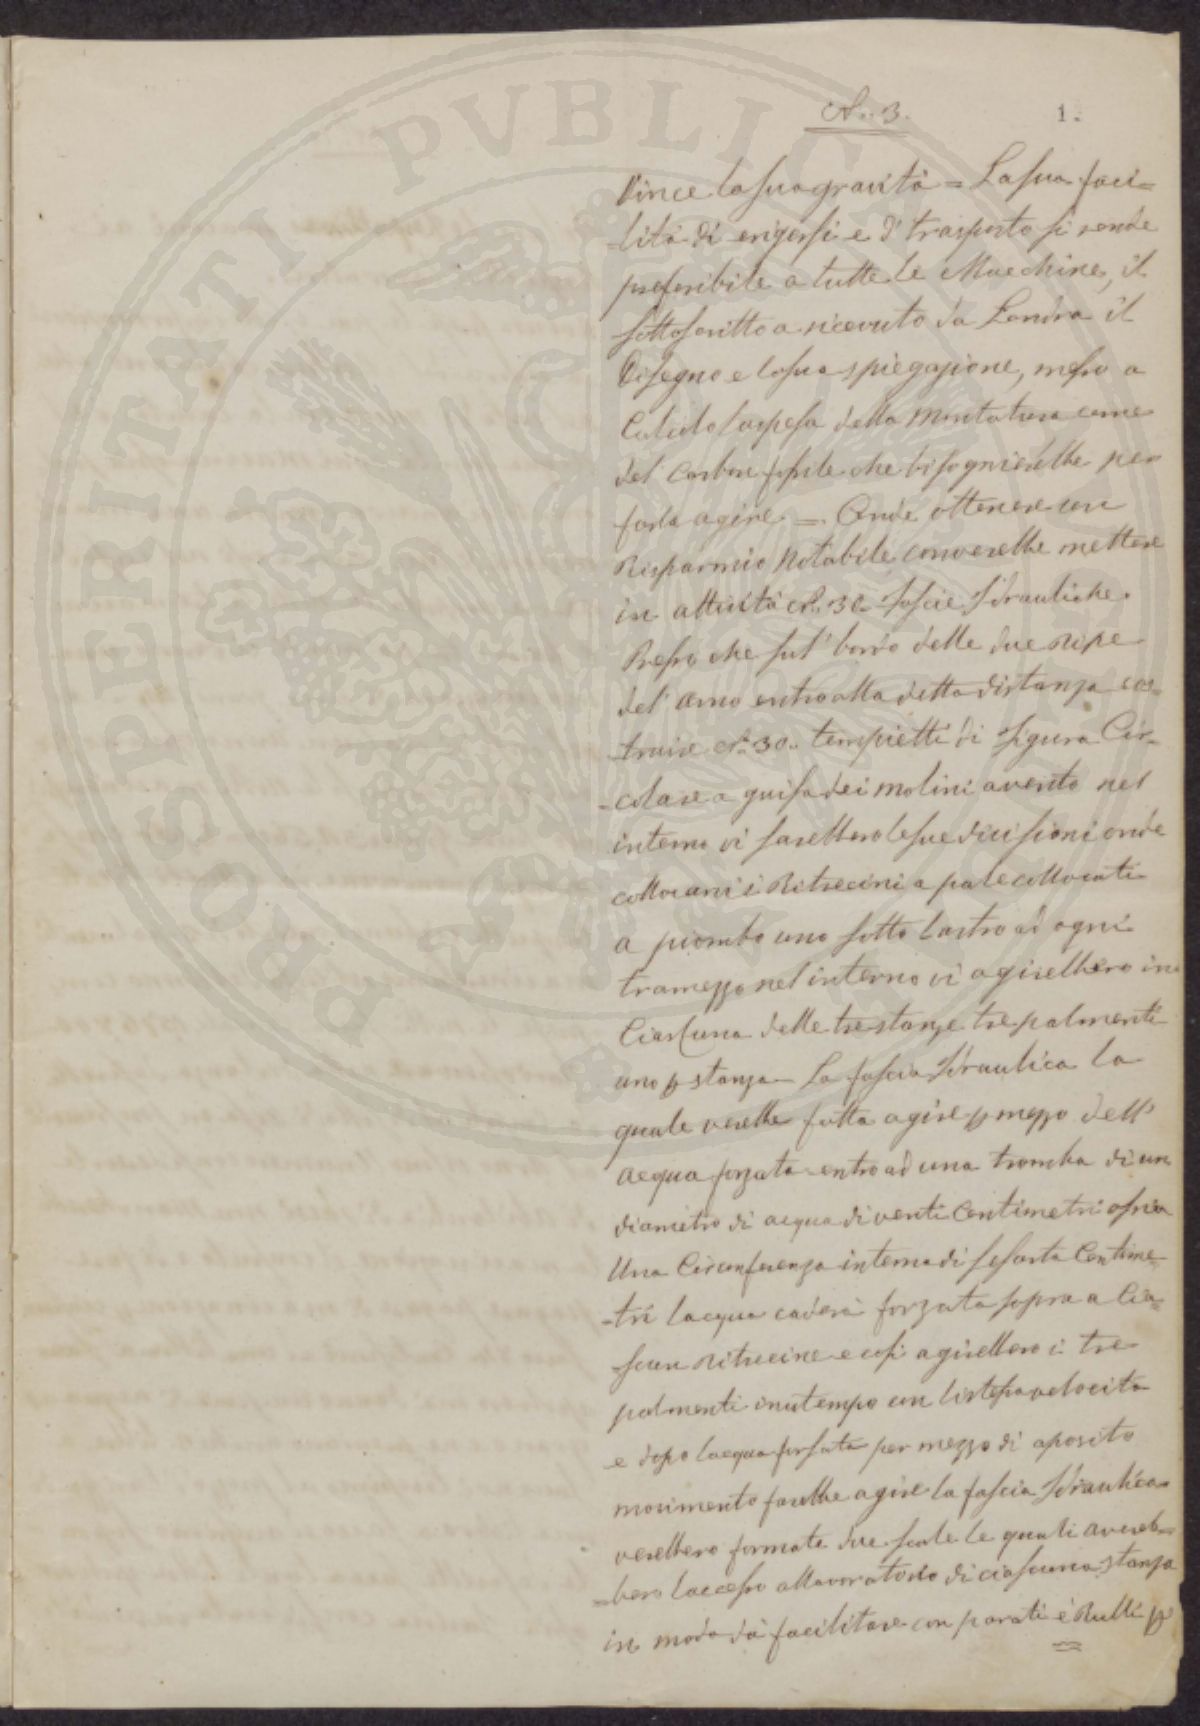 N.. 3. 1.
Vince la sua gravità = La sua faci=
=lità di erigersi e d' trasporto si rende
preferibile a tutte le Macchine, il
sottoscritto a ricevuto da Londra il
Disegno e la sua spiegazione, messo a
Calcolo la spesa della Montatura come
del Carbon fossile che bisognierebbe per
farla agire = Onde ottenere un
Risparmio Notabile converebbe mettere
in attività N. 30 Fascie Idrauliche.
Presso che sul' bordo delle due Ripe
del' Arno entro alla detta distanza cos=
=truire N.° 30.. tempietti di figura Cir=
=colare a guisa dei molini avento nel
interno vi sarebbero le sue divisioni onde
collocarvi i Ritrecini a pale collocati
a piombo uno sotto lastro ad ogni
tramezzo nel interno vi agirebbero in
Ciascuna delle tre stanze tre palmenti
uno p stanza La fascia Idraulica la
quale verebbe fatta agire p mezzo dell'
acqua forzata entro ad una tromba di un
diametro di acqua di venti Centimetri ossia
Una Circonferenza interna di sesanta Centime=
=tri lacqua caderà forzata sopra a Cia=
scun Ritrecine e così agirebbero i tre
palmenti inutempo un listessa velocita
e dopo lacqua forsata per mezzo di aposito
movimento farebbe agire la fascia Idraulica
verebbero formate due scale le quali avereb=
=bero laccesso allavoratorio di ciascuna stanza
in modo da facilitare con parati è Rulli p